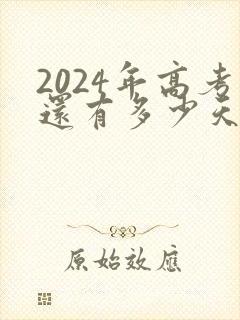 2024年高考
還有多少天
原始效應